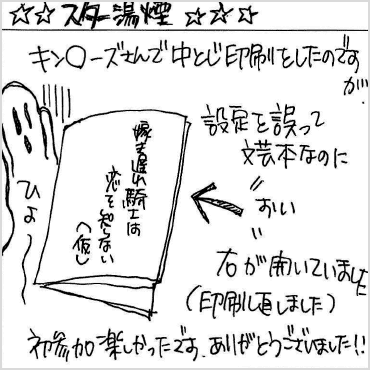 ☆☆スター湯煙☆☆☆
キン〇ーズさんで中とじ印刷をしたのですが、
設定を誤って
文芸本なのに
〃
おい
〃
右が開いていました
(印刷し直しました)
嫁き遅れ騎士は
恋を知らない
(仮)
ひょ
初参加楽しかったです。ありがとうございました!!